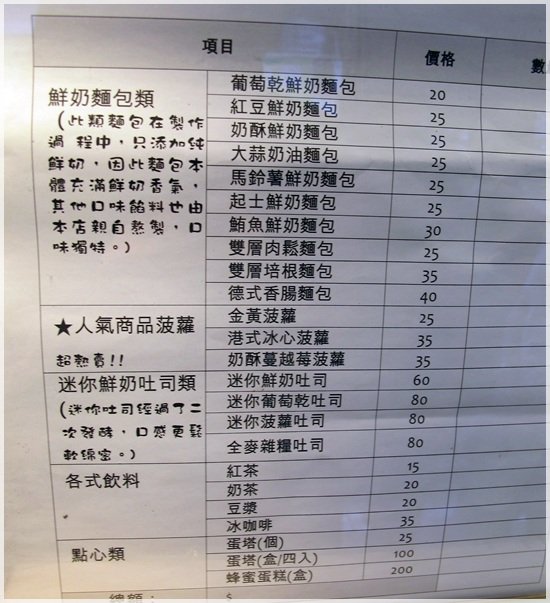 項目 價格 數
鮮奶麵包類
(此類麵包在製作
過 程中，只添加純
鮮奶，因此麵包本
體充滿鮮奶香氣，
其他口味餡料也由
本店親自熬製，口
味獨特。)
葡萄乾鮮奶麵包 20
紅豆鮮奶麵包 25
奶酥鮮奶麵包 25
大蒜奶油麵包 25
馬鈴薯鮮奶麵包 25
起士鮮奶麵包 25
鮪魚鮮奶麵包 30
雙層肉鬆麵包 25
雙層培根麵包 35
德式香腸麵包 40
★人氣商品菠蘿
超熱賣!!
金黃菠蘿 25
港式冰心菠蘿 35
奶酥蔓越莓菠蘿 35
迷你鮮奶吐司類
(迷你吐司經過了二
次發酵，口感更鬆
軟綿密。)
迷你鮮奶吐司 60
迷你葡萄乾吐司 80
迷你菠蘿吐司 80
全麥雜糧吐司 80
各式飲料
紅茶 15
奶茶 20
豆漿 20
冰咖啡 35
點心類
蛋塔(個) 25
蛋塔(盒/四入) 100
蜂蜜蛋糕(盒) 200
總額： $